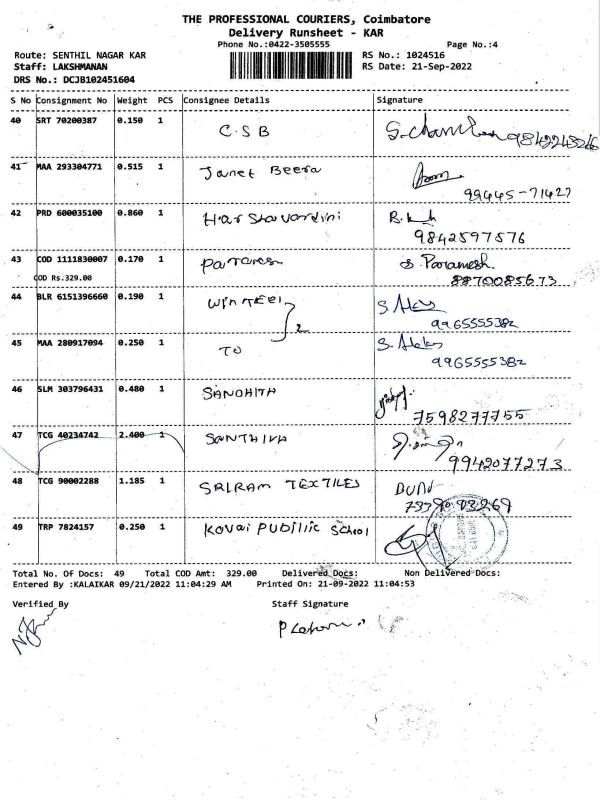 THE PROFESSIONAL COURIERS, Coimbatore
Delivery Runsheet - KAR
Phone No.:0422-3505555 Page No.:4
Route: SENTHIL NAGAR KAR RS No.: 1024516
Staff: LAKSHMANAN RS Date: 21-Sep-2022
DRS No.: DCJB102451604
S No Consignment No Weight PCS Consignee Details Signature
40 SRT 70200387 0.150 1 C.S.B 9842243246
41 MAA 293304771 0.515 1 Janet Beera
99445-71427
42 PRD 600035100 0.860 1 Harshavardini
9842597576
43 COD 1111830007 0.170 1 S. Paramesh.
COD Rs.329.00 8870085673
44 BLR 6151396660 0.190 1
9965555382
2
45 MAA 280917094 0.250 1 TO
9965555382
46 SLM 303796431 0.480 1 SANDHITA
7598277755
47 TCG 40234742 2.400 1
9942077273
48 TCG 90002288 1.185 1 SRIRAM TEXTILES
49 TRP 7824157 0.250 1 Kovai Publlic School
Total No. Of Docs: 49 Total COD Amt: 329.00 Delivered Docs: Non Delivered Docs:
Entered By :KALAIKAR 09/21/2022 11:04:29 AM Printed On: 21-09-2022 11:04:53
Verified By Staff Signature